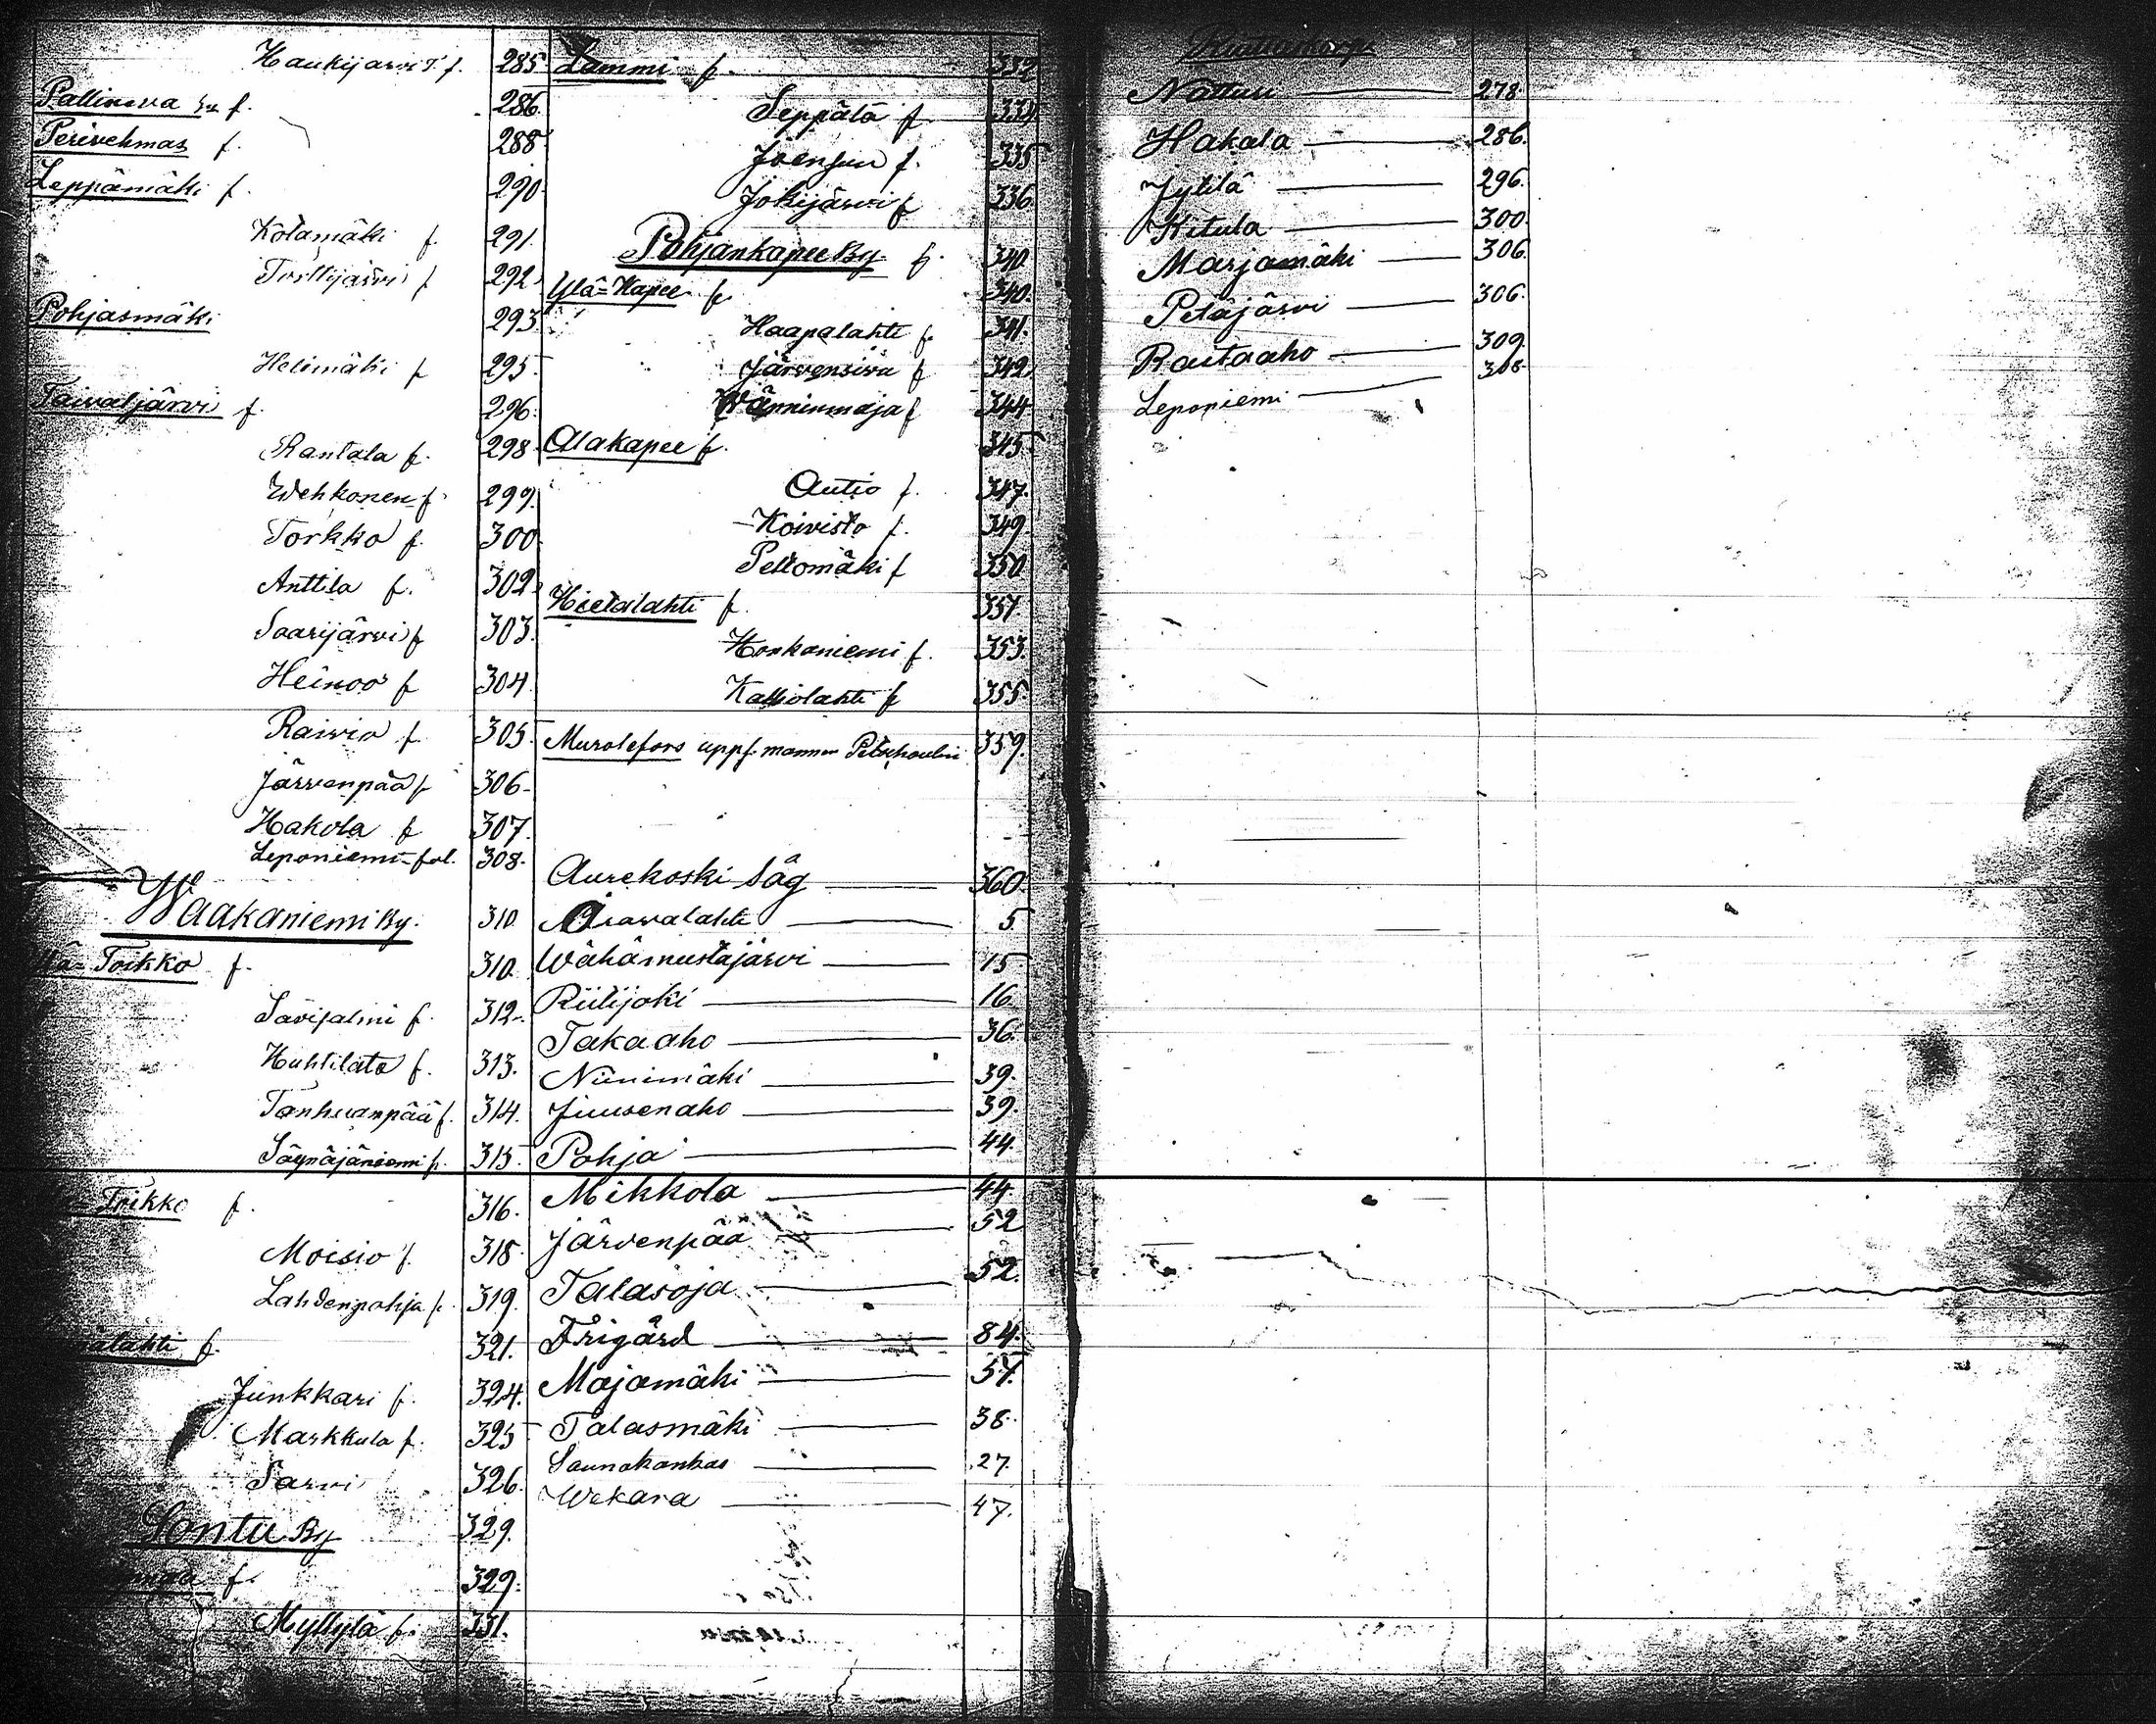 Haukijarvi T. f. 285
Pallinova f. 286
Perivehmas f. 288
Leppämäki f. 290
Kotamäki f. 291.
Torttijärvi f 292
Pohjasmäki 293
Helimäki f 295
Taivaljärvi f. 296.
Rantala f. 298.
Wehkonen f 299.
Torkko f. 300.
Anttila f. 302.
Saarijärvi f 303.
Heinoo f 304.
Raivio f. 305.
Järvenpää f 306
Hakola f 307.
Leponiemi fol. 308.
Waakaniemi By. 310
Toikko f. 310.
Savisalmi f. 312.
Huhtilato f. 313.
Tanhuanpää f. 314.
Säynäjäniemi f. 315
Toikko f. 316.
Moisio f. 318
Lahdenpohja f. 319.
lahti f. 321.
Junkkari f. 324.
Markkula f. 325
Sarvi 326.
Pontu By 329.
f. 329.
Myllylä f. 331.
Lammi f. 332
Seppälä f 334
Joensuu f. 335
Jokijärvi f 336
Pohjankapee By. f. 340.
Ylä-Kapee f. 340.
Haapalahti f. 341.
Järvensivu f 342
Wänninmaja f 344
Alakapee f. 345
Autio f. 347.
Koivisto f. 349
Peltomäki f 350
Hietalahti f. 351.
Honkaniemi f. 353.
Kalliolahti f 355
Murolefors uppf. mannen 359.
Aurekoski Såg 360.
Aravalahti 5
Wähämustajärvi 15
Riilijoki 16.
Takaaho 36.
Niinimäki 39.
Juusenaho 39.
Pohja 44.
Mikkola 44
Järvenpää 52
Talasoja 52.
Frigård 84.
Majamäki 57.
Talasmäki 38.
Saunakankas 27.
Wekara 47.
Natturi 278
Hakala 286.
Jylilä 296.
Kitula 300.
Marjamäki 306.
Petäjärvi 306.
Rautaaho 309.
Leponiemi 308.